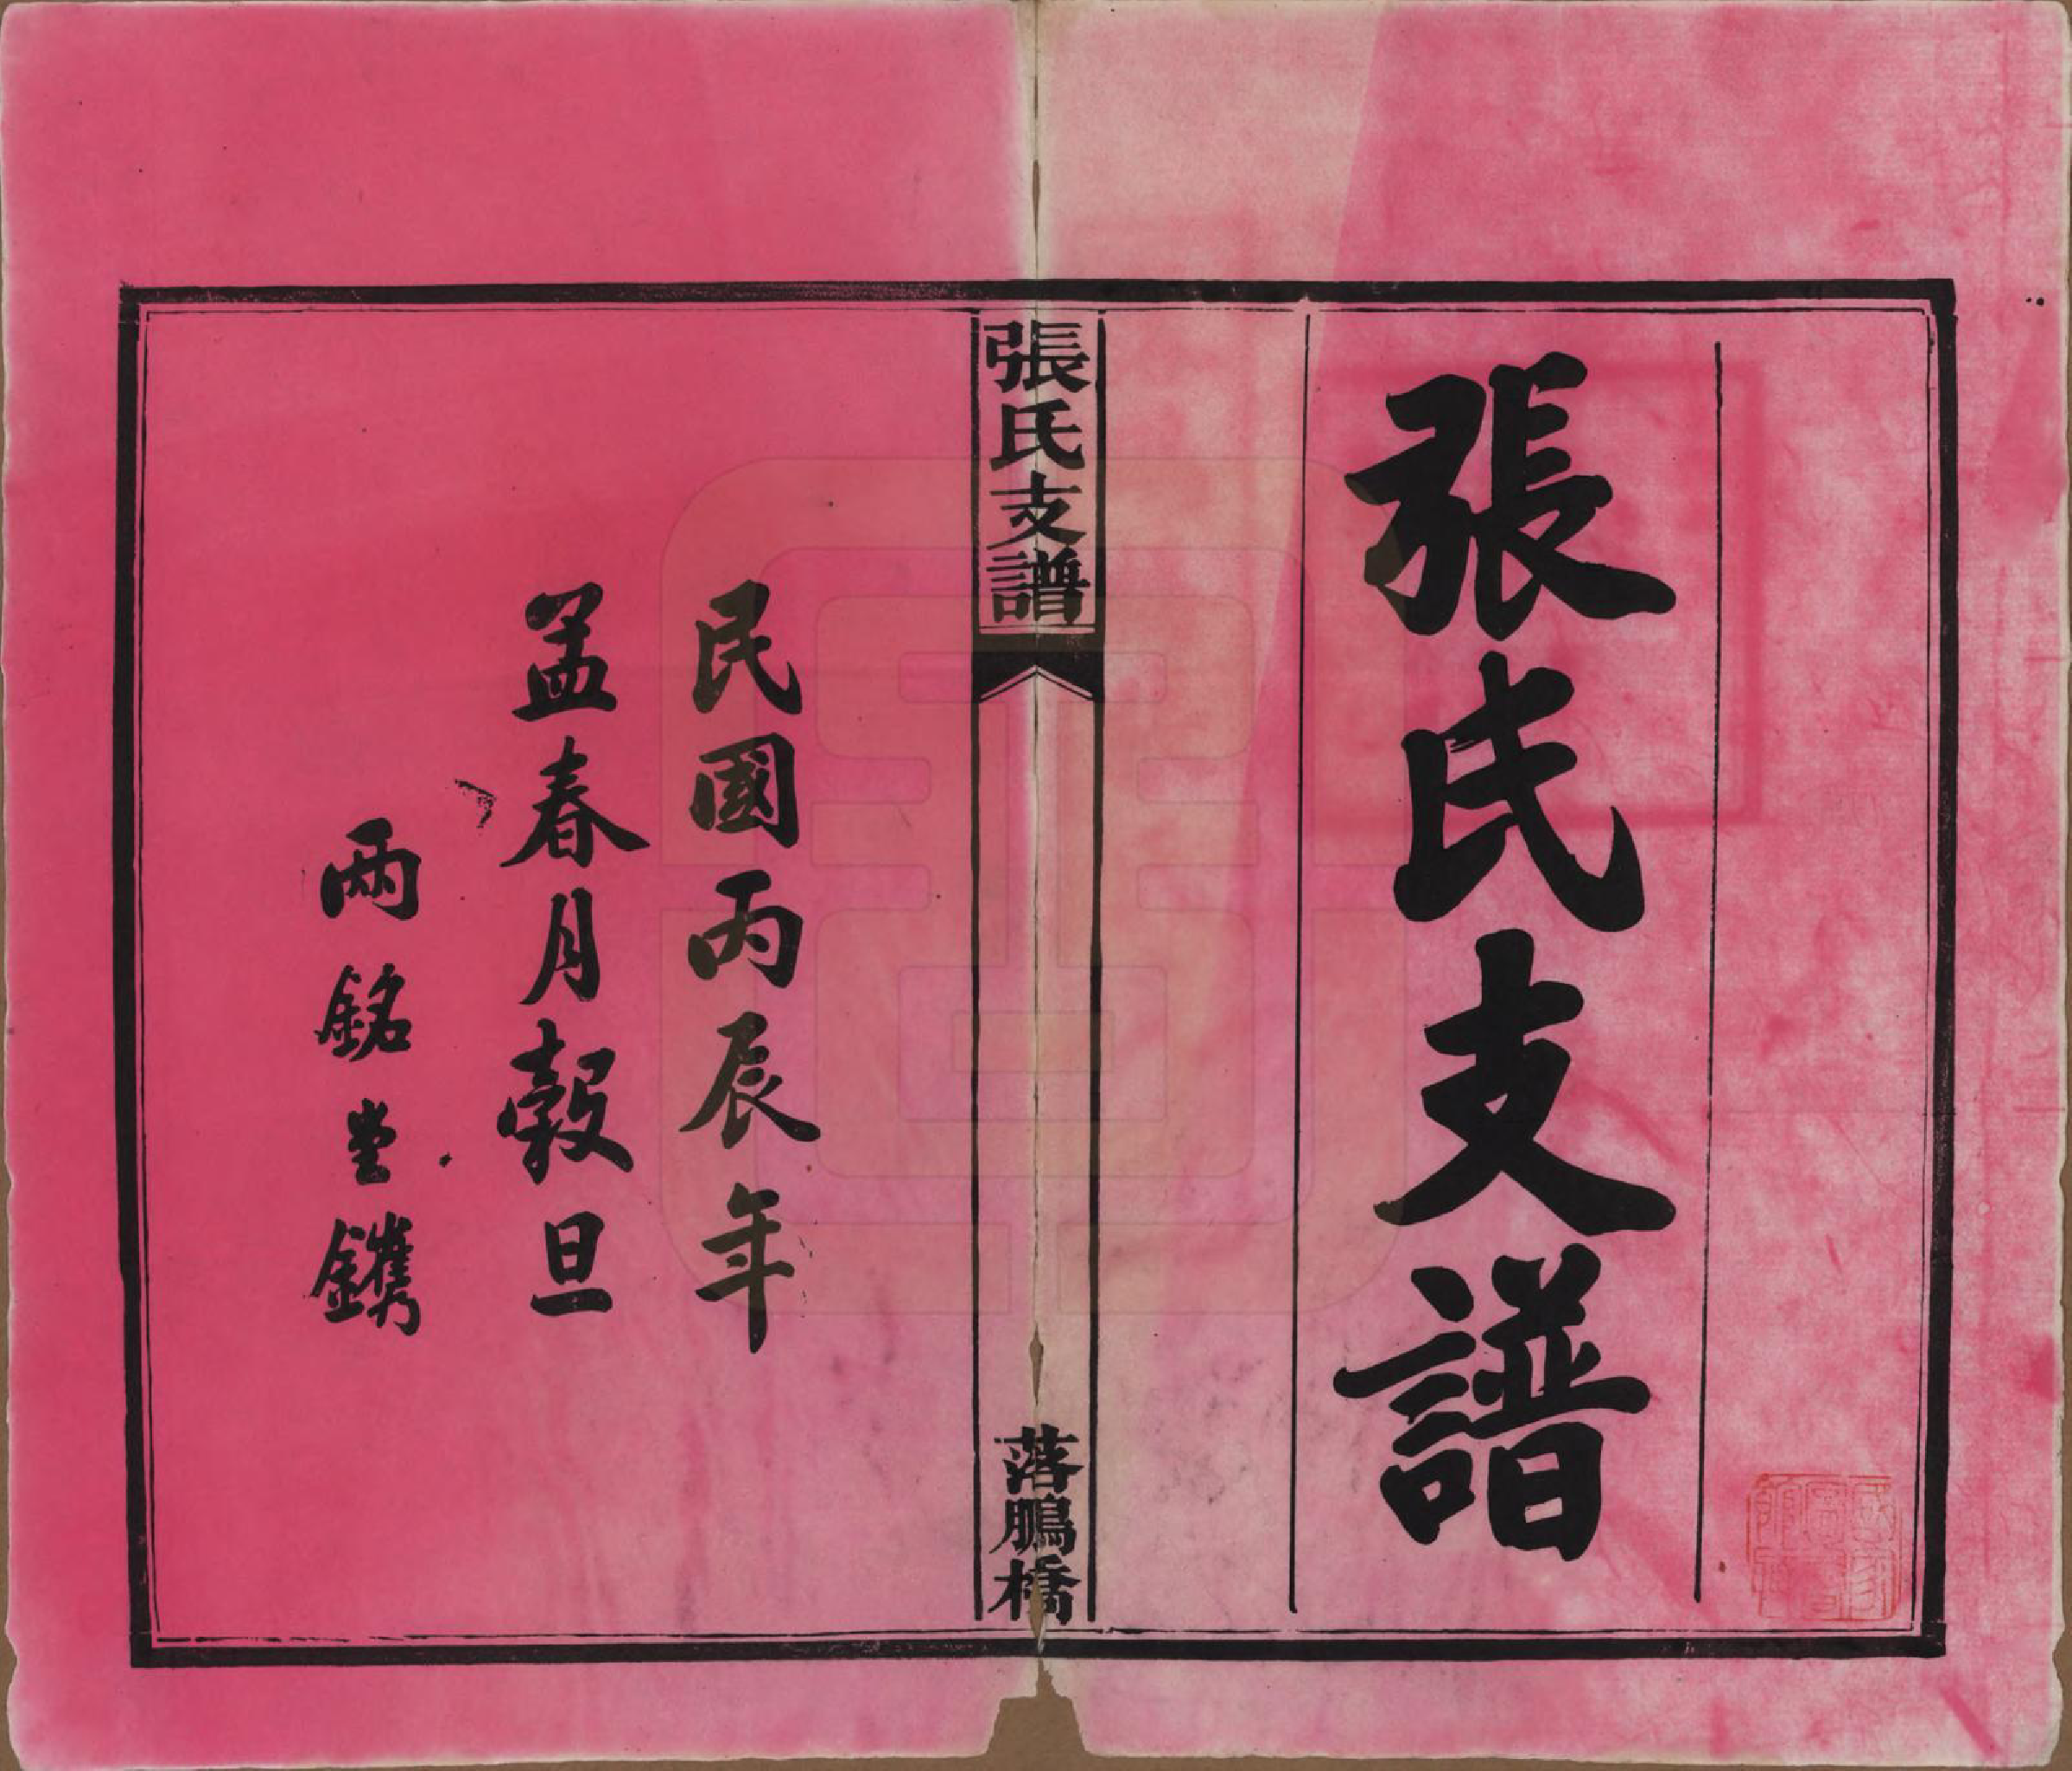 張氏支譜
張氏支譜
落鵬橋
民國丙辰年
孟春月穀旦
兩銘堂鐫